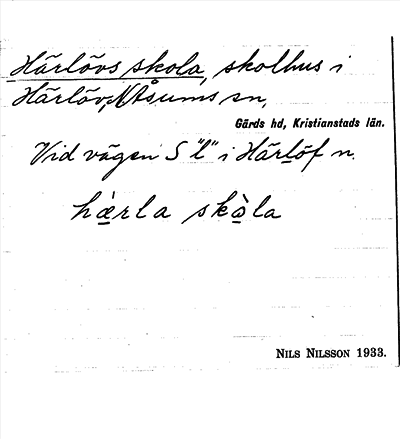 Härlövs skola, skolhus i
Härlöv, N Åsums sn,
Gärds hd, Kristianstads län.
Vid vägen S "l" i Härlöf n.
hæ̀rla skò̱la
NILS NILSSON 1933.